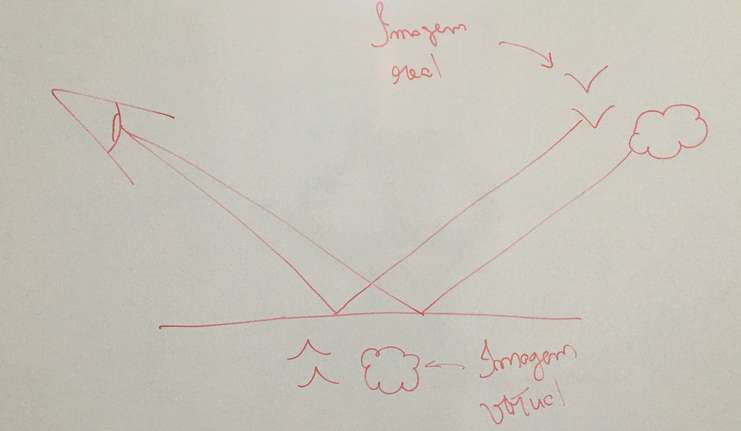 Imagem
real
Imagem
virtual